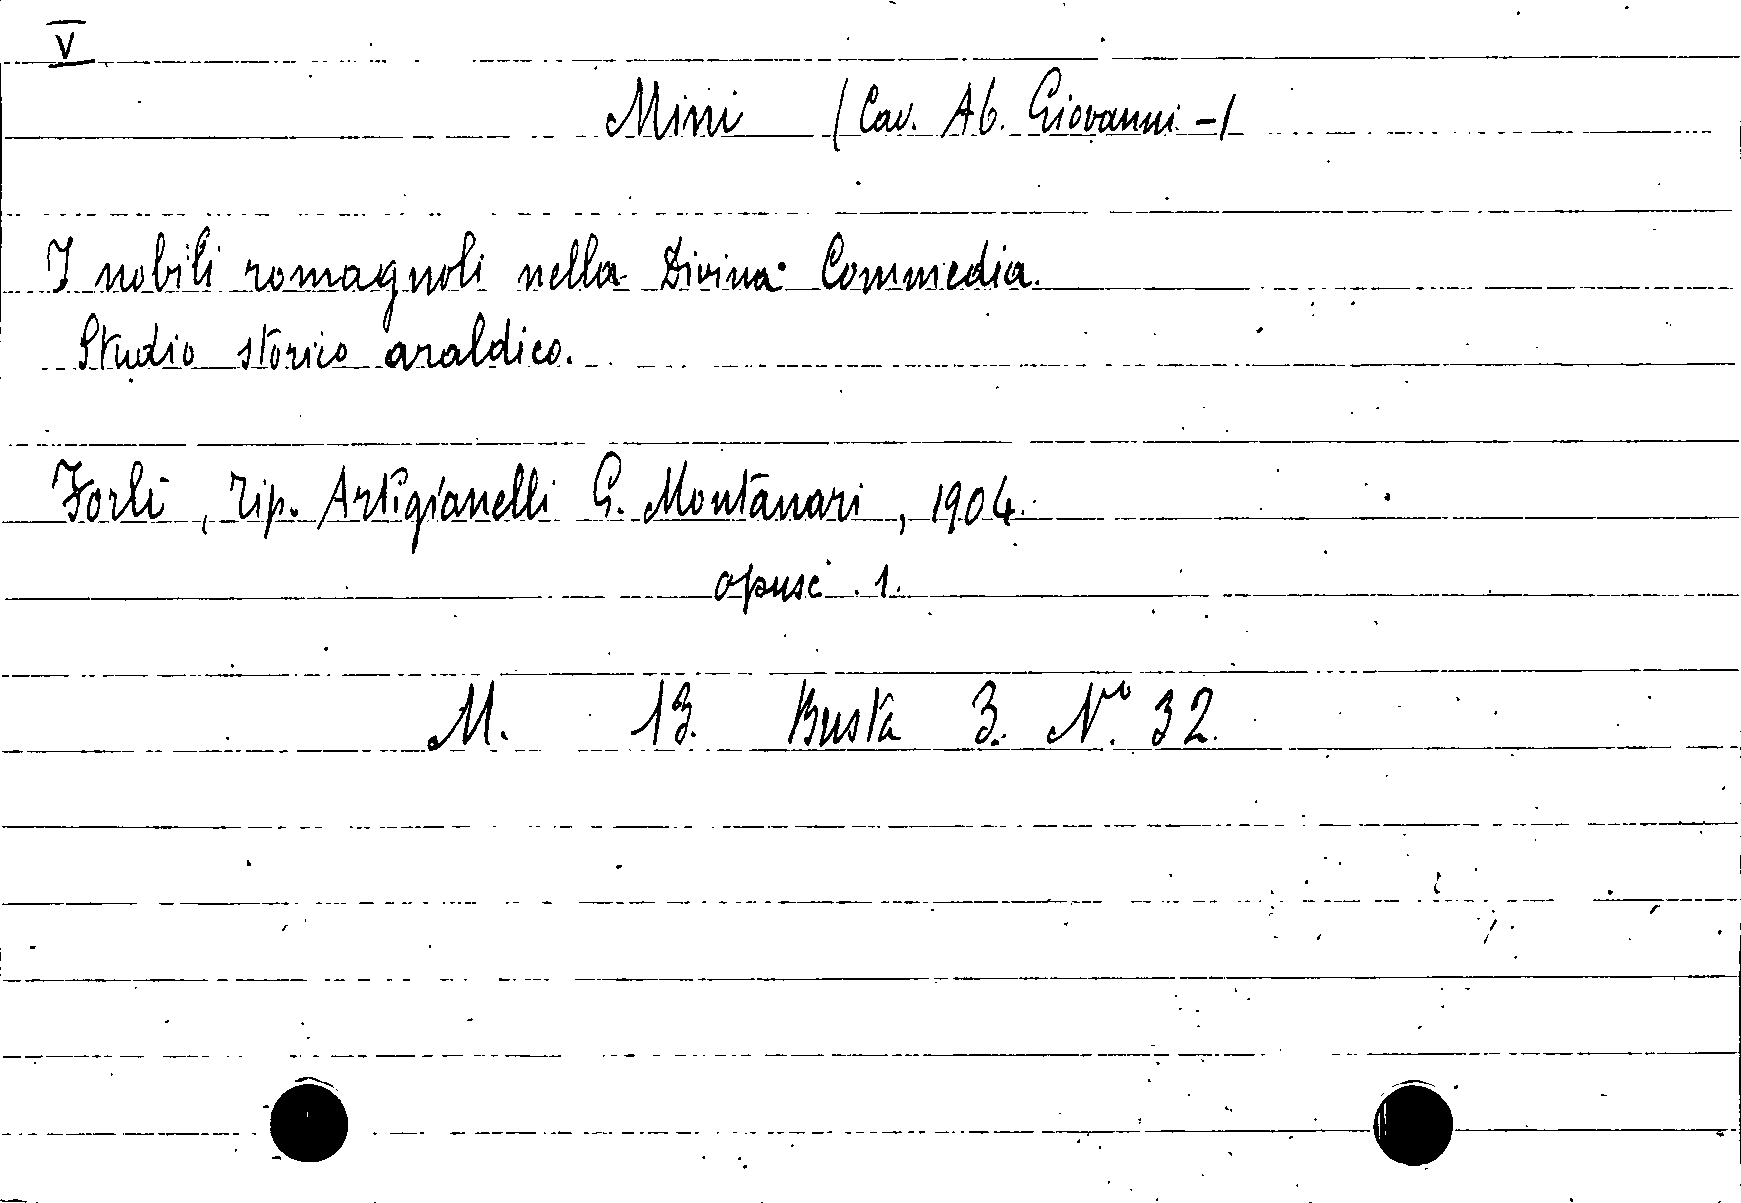 V
Mini (Cav. Ab. Giovanni -)
I nobili romagnoli nella Divina Commedia.
Studio storico araldico.
Forlì, Tip. Artigianelli G. Montanari, 1904.
opusc. 1.
M. 13. Busta 3. No. 32.